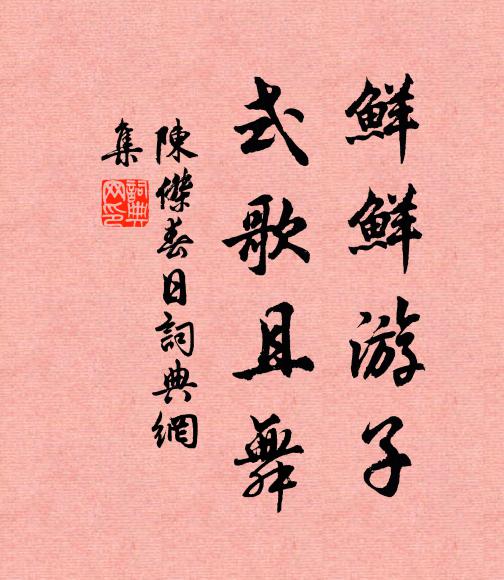 鮮鮮游子
式歌且舞
陳傑春日詞典網
集
詞典
网印